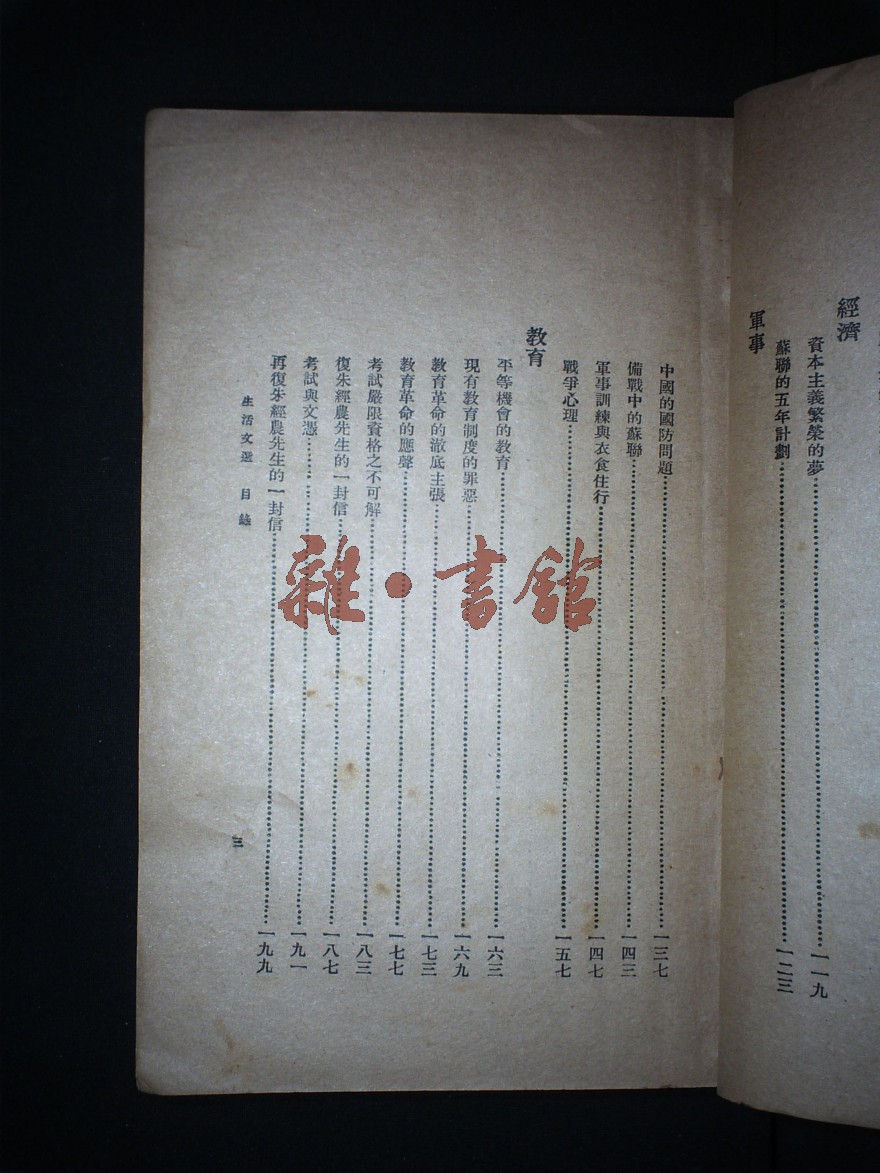 經濟
資本主義繁榮的夢……一一九
蘇聯的五年計劃……一二三
軍事
中國的國防問題……一三七
備戰中的蘇聯……一四三
軍事訓練與衣食住行……一四七
戰爭心理……一五七
教育
平等機會的教育……一六三
現有教育制度的罪惡……一六九
教育革命的澈底主張……一七三
教育革命的應聲……一七七
考試嚴限資格之不可解……一八三
復朱經農先生的一封信……一八七
考試與文憑……一九一
再復朱經農先生的一封信……一九九
生活文選 目錄
三
雜·書館